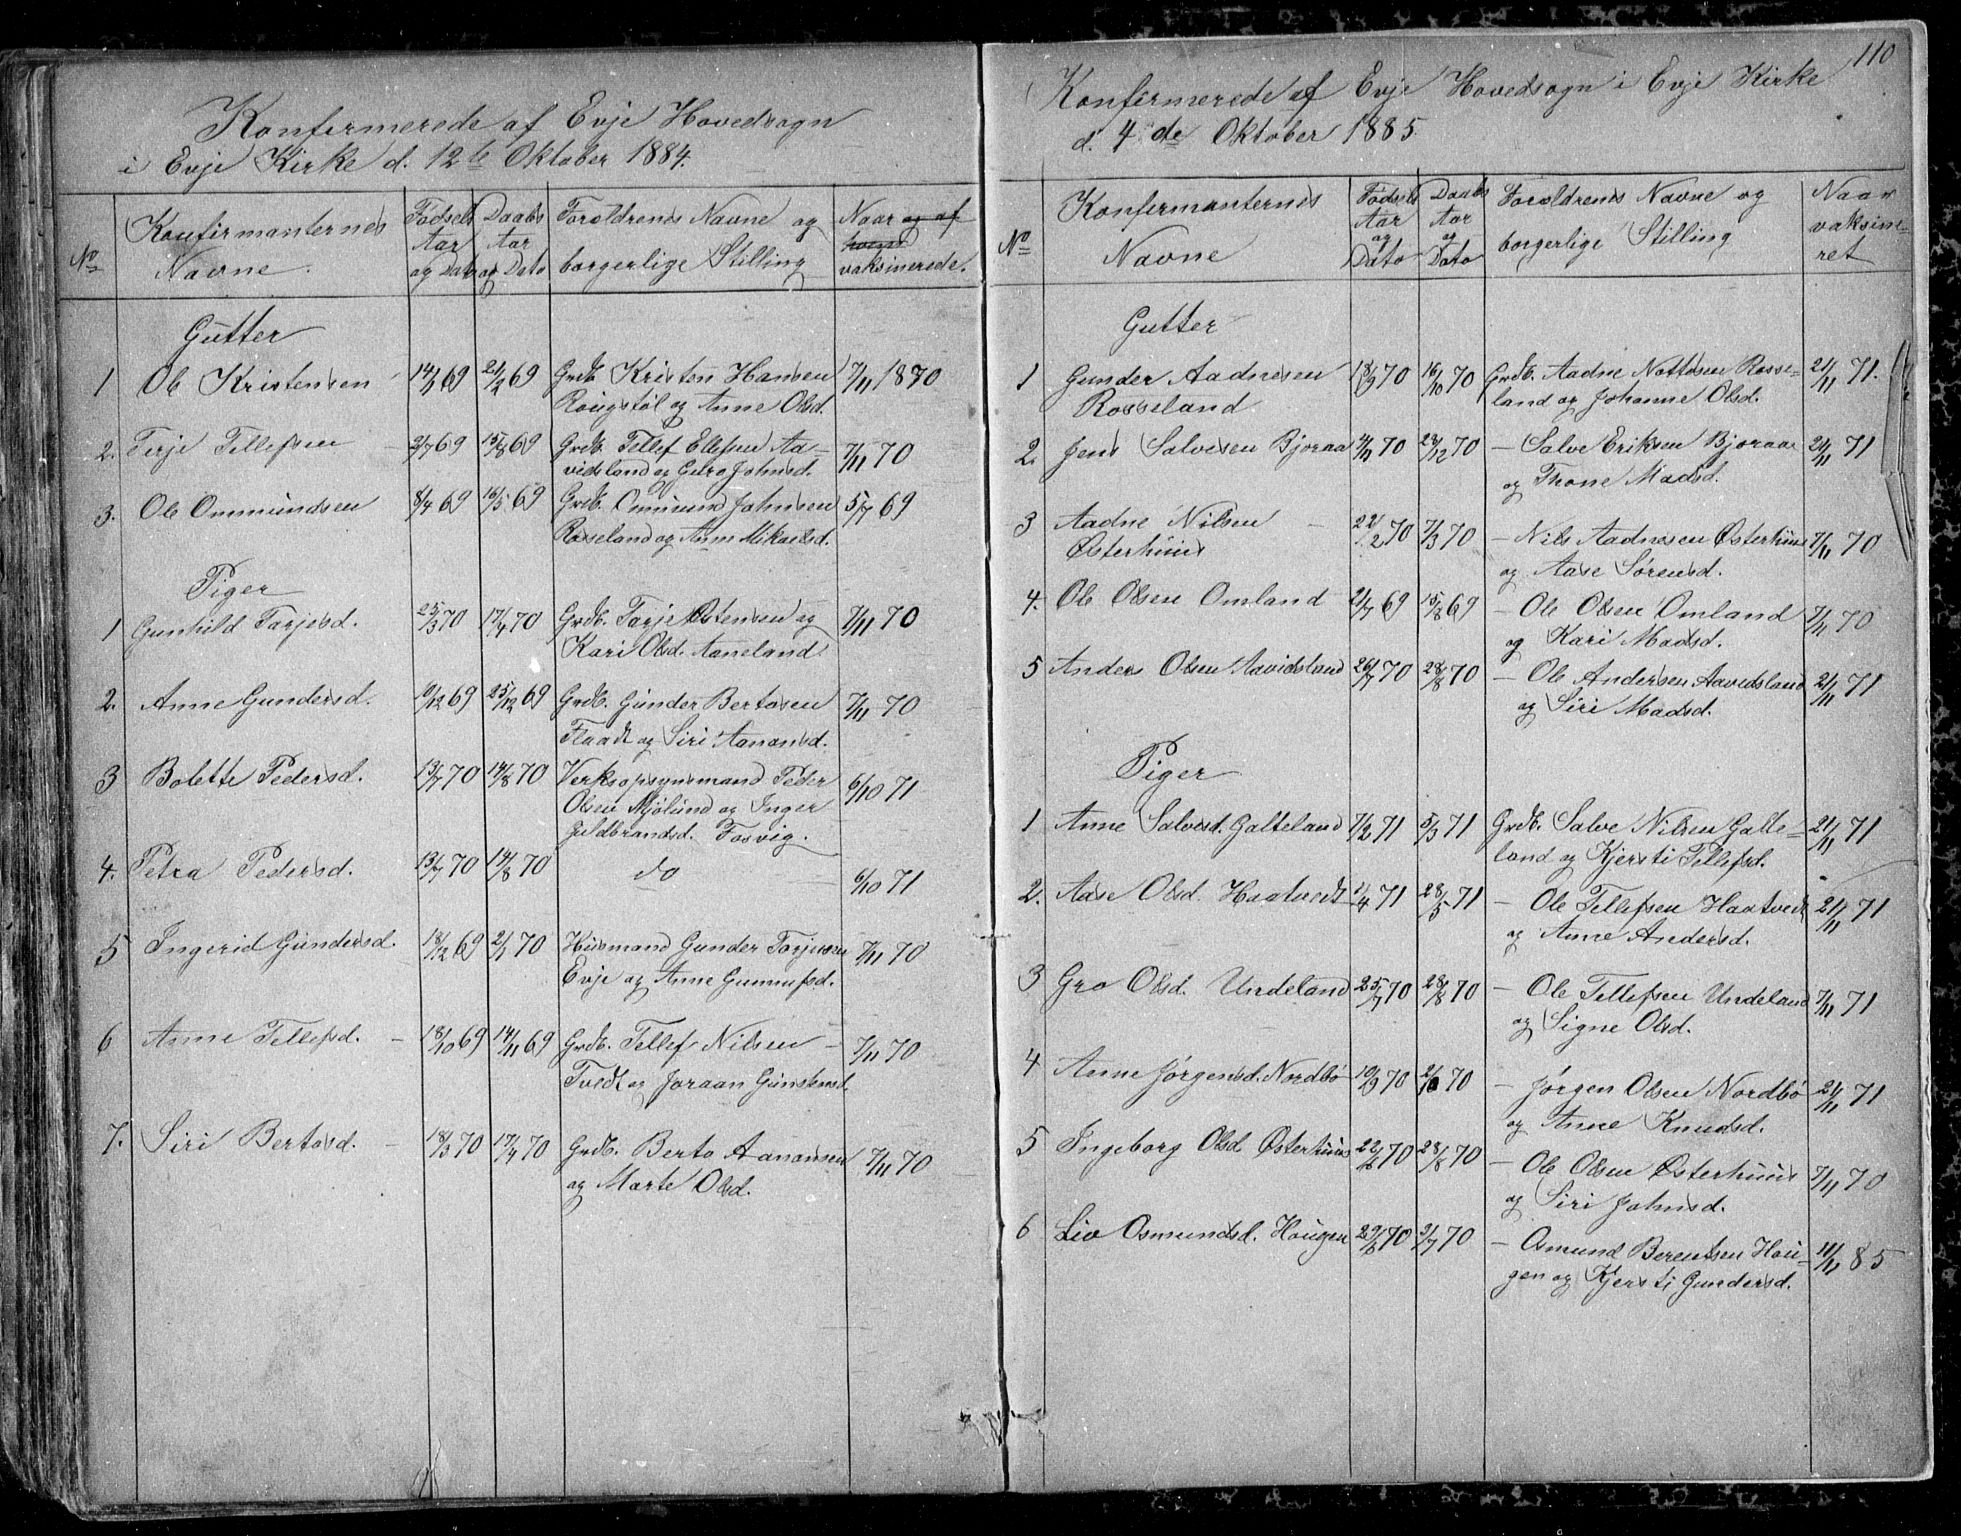 Konfirmerede af Evje Hovedsogn
i Evje Kirke d. 12te Oktober 1884.
No
Konfirmanternes
Navne.
Fødsels
Aar
og Dato
Daabs
Aar
og Dato
Forældrenes Navne og
borgerlige Stilling
Naar og af
hvem
vaksinerede.
Gutter
1 Ole Kristensen 14/1 69 21/2 69 Grdb. Kristen Hansen 7/11 1870
Rougstøl og Anne Olsd.
2. Terje Tellefsen 2/7 69 15/8 69 Grdb. Tellef Ellefsen Aa-
vidsland og Guro Johnsd. 7/11 70
3. Ole Ommundsen 8/4 69 16/5 69 Grdb. Ommund Johnsen 5/7 69
Rosseland og Anne Mikaelsd.
Piger
1 Gunhild Tarjesd. 25/3 70 17/4 70 Grdb. Tarje Ostensen og 7/11 70
Kari Olsd. Aaneland
2. Anne Gundersd. 10/12 69 25/12 69 Grdb. Gunder Bertosen 7/11 70
Flaadt og Siri Aanonsd.
3 Bolette Pedersd. 13/7 70 14/8 70 Verksopsynsmand Peder 6/10 71
Olsen Mjølund og Inger
Juldbrandsd. Fosvig.
4. Petra Pedersd. 13/7 70 14/8 70 do 6/10 71
5 Ingerid Gundersd. 18/12 69 2/1 70 Husmand Gunder Tarjesen 7/11 70
Evje og Anne Gunnufsd.
6 Anne Tellefsd. – 18/10 69 14/11 69 Grdb. Tellef Nilsen – 7/11 70
Tvedt og Joraan Gunstensd.
7. Siri Bertosd. – 18/3 70 17/4 70 Grdb. Berto Aanonsen 7/11 70
og Marte Olsd.
110
Konfirmerede af Evje Hovedsogn i Evje Kirke
d. 4de Oktober 1885.
No
Konfirmanternes
Navne
Fødsels
Aar
og
Dato
Daabs
Aar
og
Dato
Forældrenes Navne og
borgerlige Stilling
Naar
vaksine-
ret
Gutter
1 Gunder Aadnesen 18/9 70 16/10 70 Grdb. Aadne Nottosen Rosse- 21/11 71.
Rosseland land og Johanne Olsd.
2. Jens Salvesen Bjoraa 4/11 70 28/12 70 – Salve Eriksen Bjoraa 21/11 71
og Thone Madsd.
3 Aadne Nilsen – 22/2 70 7/3 70 – Nils Aadnesen Østerhuus 7/11 70
Østerhuus og Aase Sørensd.
4. Ole Olsen Omland 21/7 69 15/8 69 – Ole Olsen Omland 7/11 70
og Kari Madsd.
5 Anders Olsen Aavidsland 26/7 70 28/8 70 – Ole Andersen Aavidsland 21/11 71
og Siri Madsd.
Piger
1 Anne Salvesd. Galteland 7/2 71 5/3 71 Grdb. Salve Nilsen Galte- 21/11 71
land og Kjersti Tellefsd.
2. Aase Olsd. Haatvedt 1/4 71 28/5 71 – Ole Tellefsen Haatvedt 21/11 71
og Anne Andersd.
3 Gro Olsd. Undeland 25/7 70 28/8 70 – Ole Tellefsen Undeland 7/11 71
og Signe Olsd.
4 Anne Jørgensd. Nordbø 10/9 70 2/10 70 – Jørgen Olsen Nordbø 21/11 71
og Anne Knudsd.
5 Ingeborg Olsd Østerhuus 22/6 70 28/8 70 – Ole Olsen Østerhuus 7/11 70
og Siri Johnsd.
6 Liv Osmundsd. Hougen 29/6 70 31/7 70 – Osmund Berentsen Hou- 11/11 85
gen og Kjersti Gundersd.